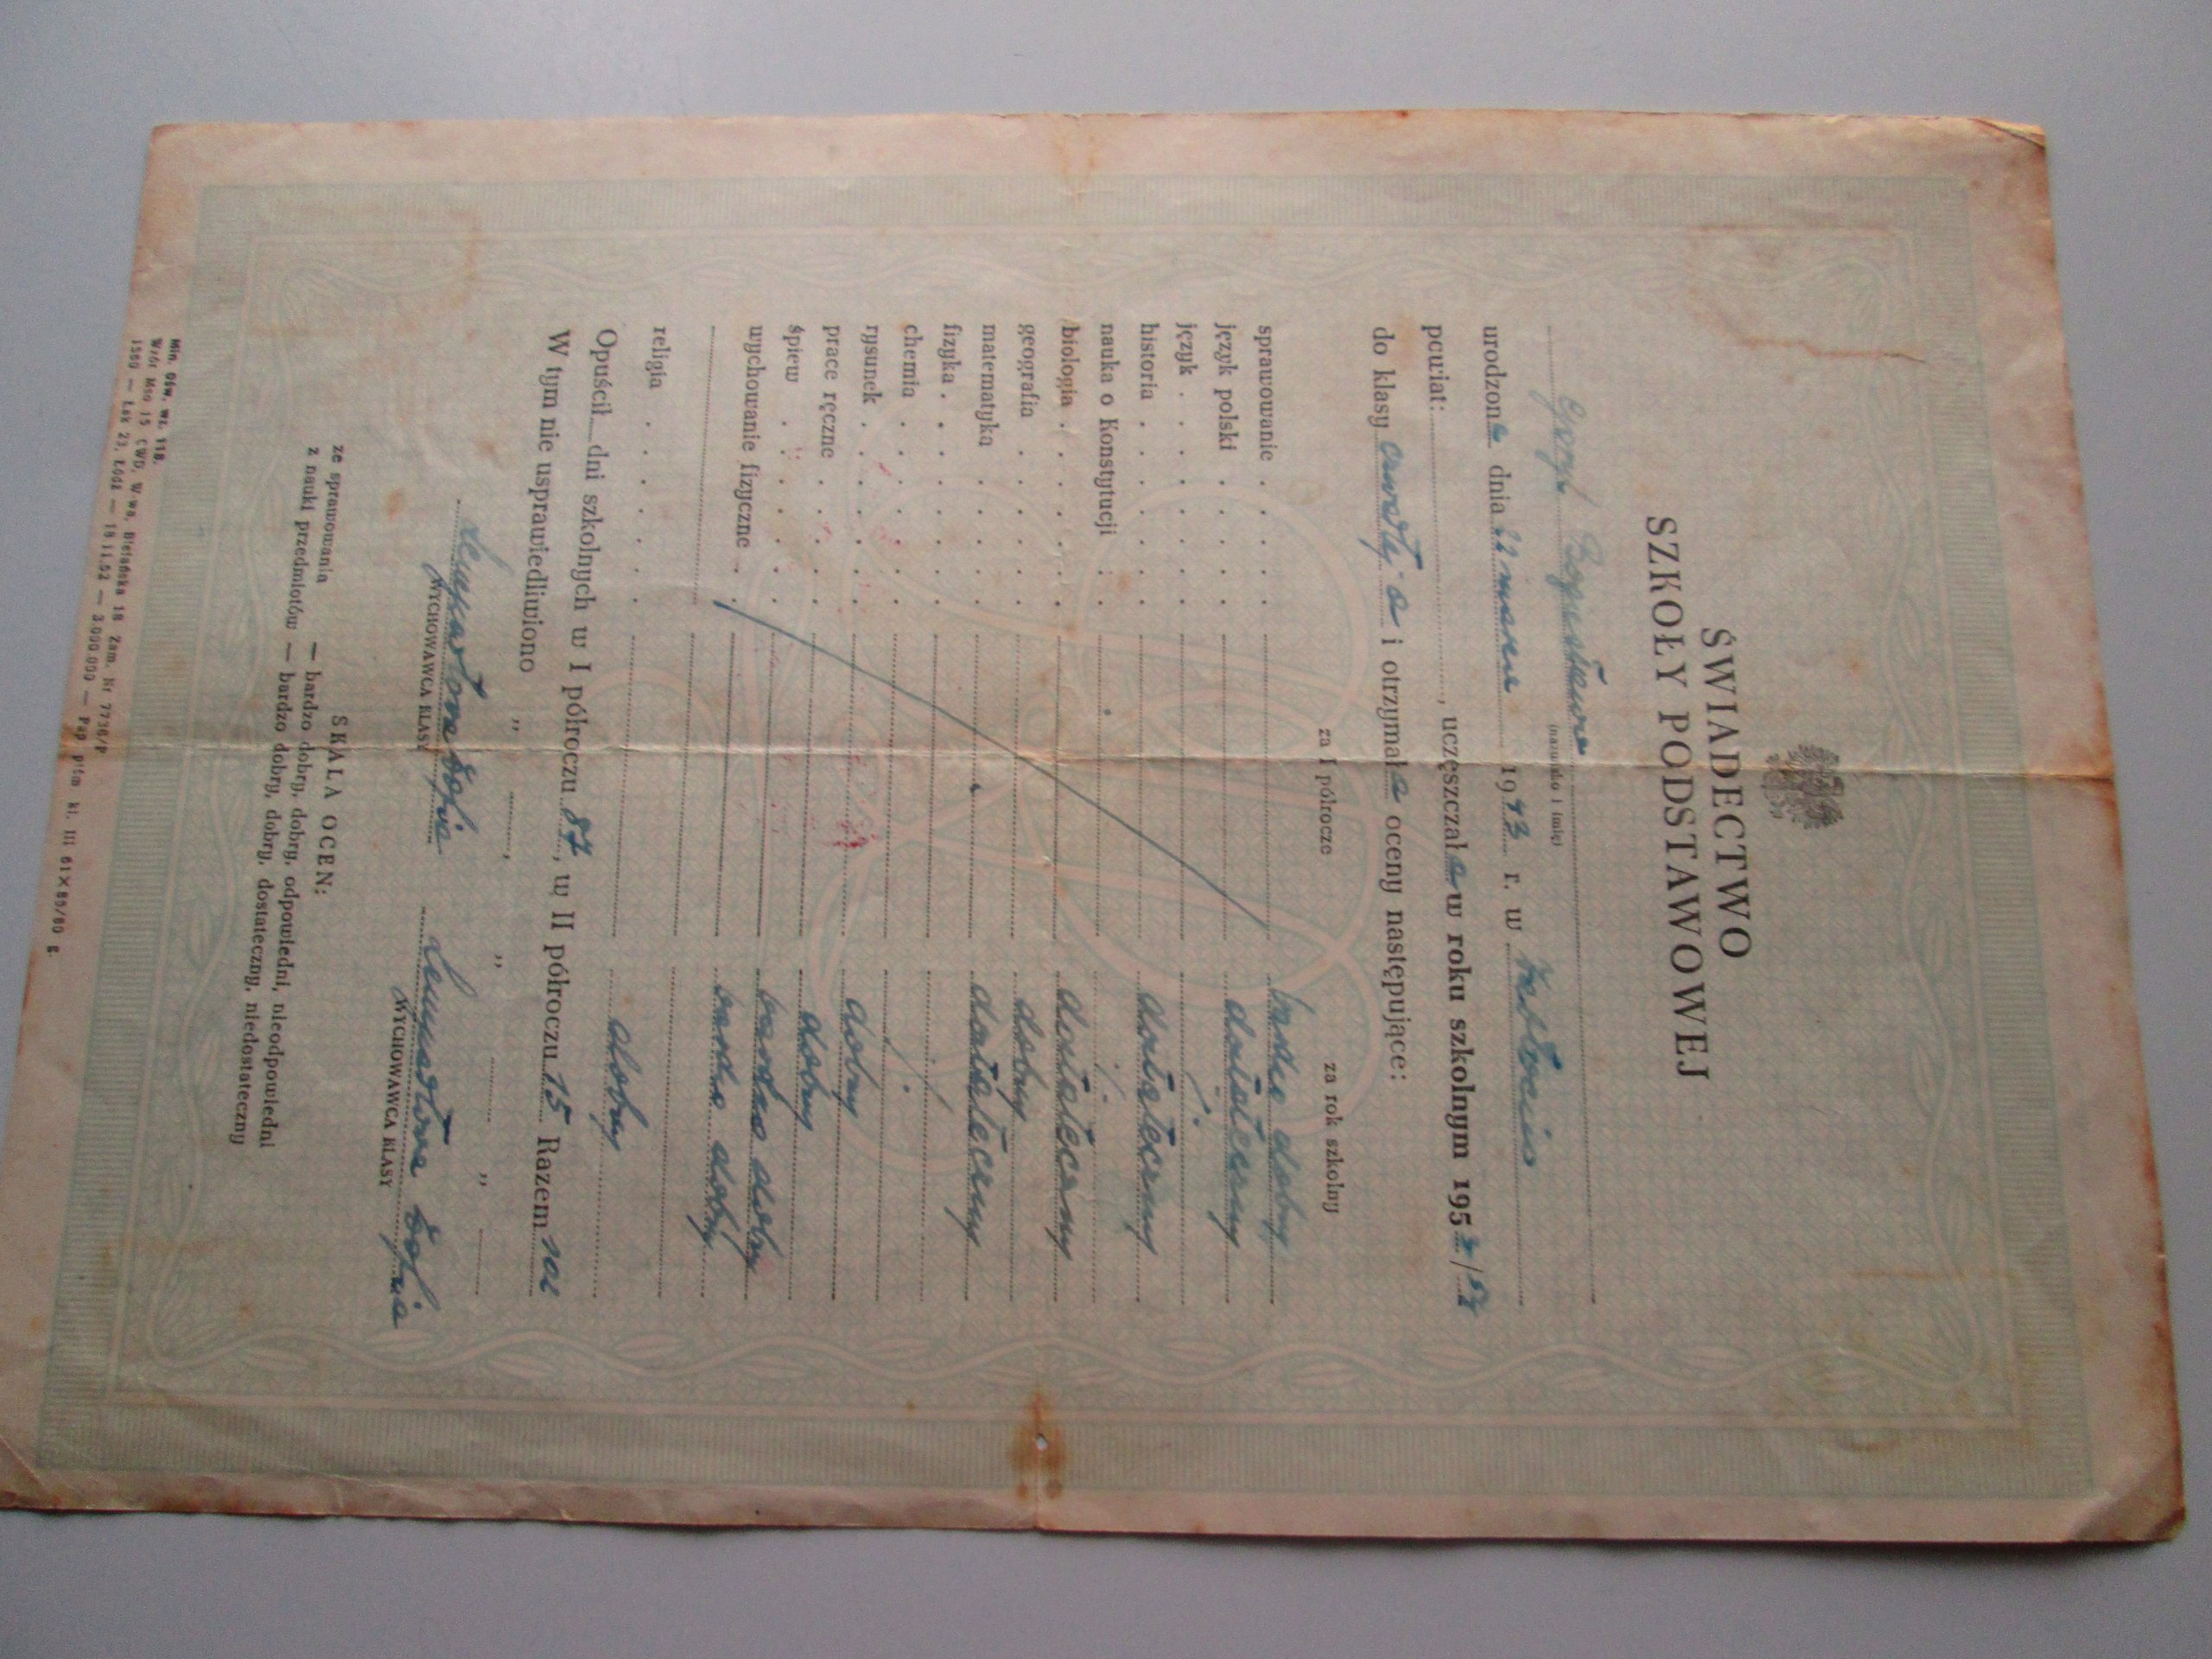 ŚWIADECTWO
SZKOŁY PODSTAWOWEJ
(nazwisko i imię)
urodzona dnia 22 marca 1943 r. w
powiat: , uczęszczała w roku szkolnym 195
do klasy czwartej a i otrzymała oceny następujące:
za I półrocze za rok szkolny
sprawowanie . . . . bardzo dobry
język polski . . . . dostateczny
język . . . . . .
historia . . . . . dostateczny
nauka o Konstytucji . .
biologia . . . . . dostateczny
geografia . . . . dobry
matematyka . . . . dostateczny
fizyka . . . . . .
chemia . . . . . .
rysunek . . . . . dobry
prace ręczne . . . dobry
śpiew . . . . . . bardzo dobry
wychowanie fizyczne . . bardzo dobry
religia . . . . . . dobry
Opuścił dni szkolnych w I półroczu 87, w II półroczu 15 Razem 102
W tym nie usprawiedliwiono „ , „ „
WYCHOWAWCA KLASY WYCHOWAWCA KLASY
SKALA OCEN:
ze sprawowania — bardzo dobry, dobry, odpowiedni, nieodpowiedni
z nauki przedmiotów — bardzo dobry, dobry, dostateczny, niedostateczny
Min. Ośw. Wz. 118.
Wzór Mso 15 CWD, W-wa, Bielańska 18 Zam. Nr 7736/P
1580 — Łak 23, Łódź — 18 II.52 — 3.000.000 — Pap piśm kl. III 61×86/60 g.